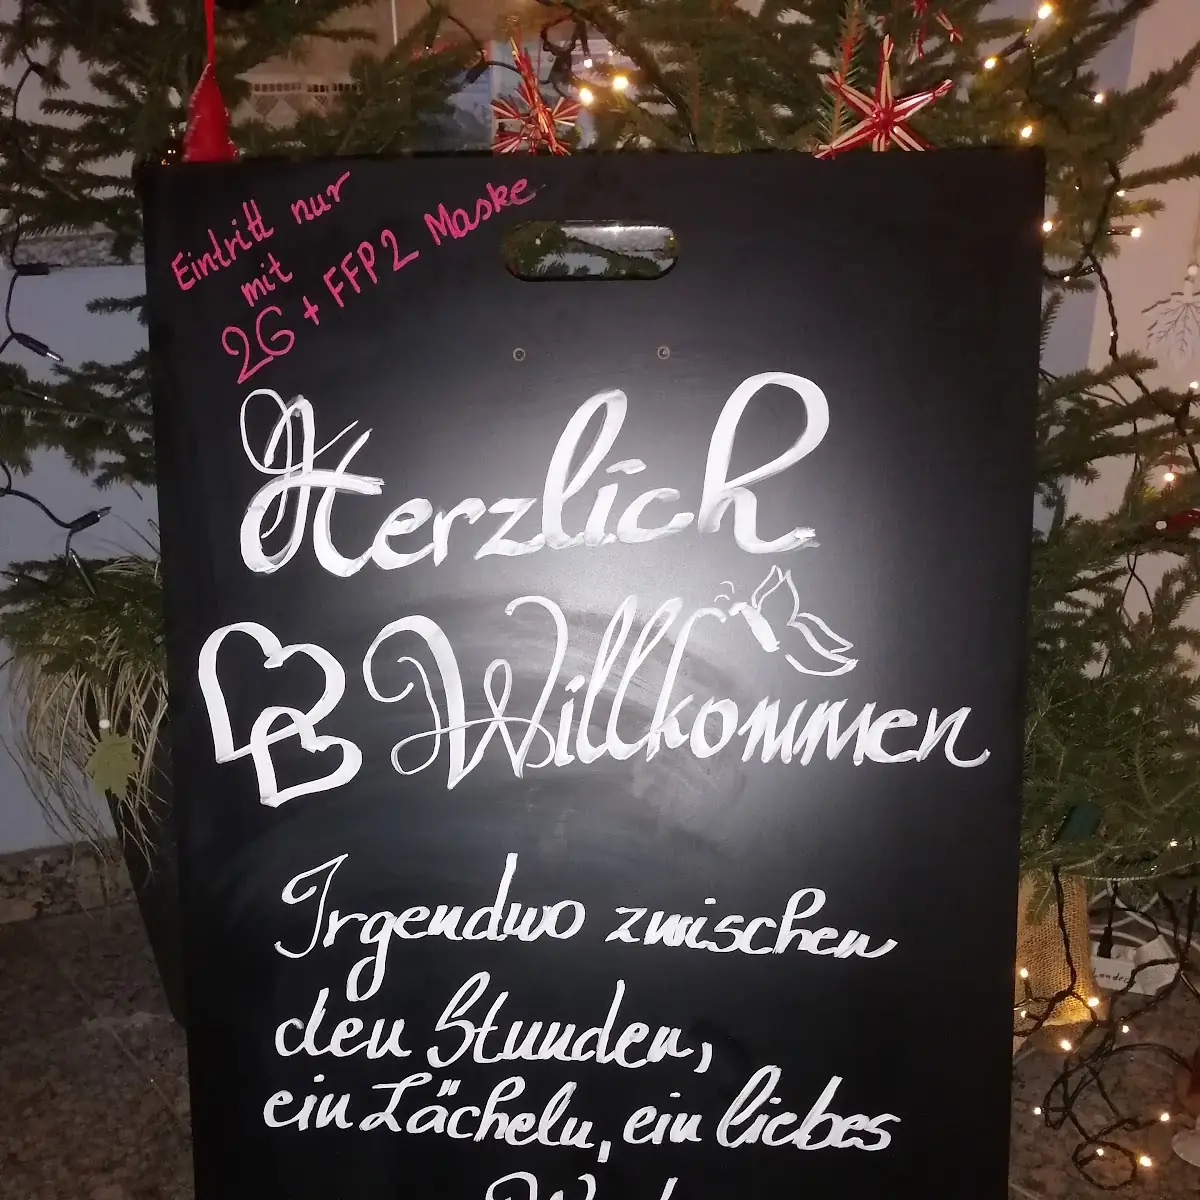 Eintritt nur
mit
2G + FFP2 Maske
Herzlich
Willkommen
Irgendwo zwischen
den Stunden,
ein Lächeln, ein liebes